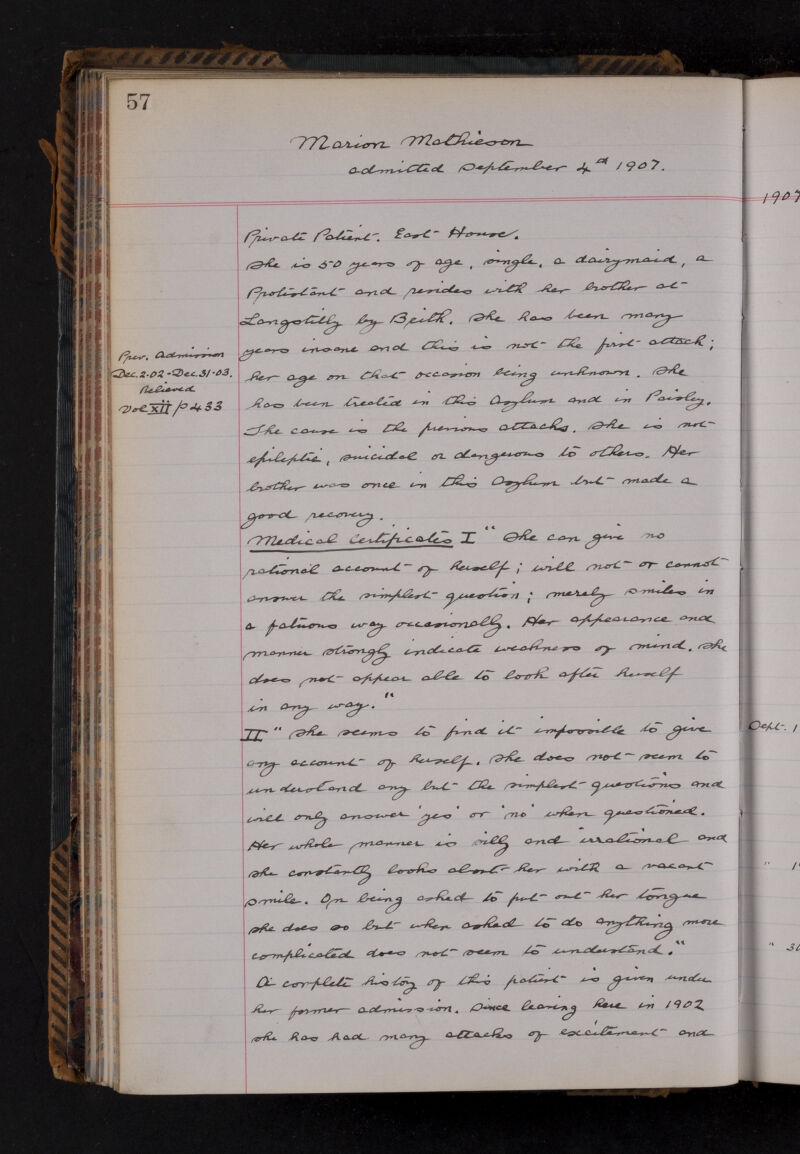 57
Marion Mathieson
admitted September 4th 1907.
Private Patient. East House.
She is 50 years of age, single, a dairymaid, a
Protistant and resides with her brother at
Langstilly by Beith. She has been many
years insane and this is not the first attack;
her age on that occasion being unknown. She
has been treated in this Asylum and in Paisley.
The cause is the previous attacks. She is not
epileptic, suicidal or dangerous to others. Her
brother was once in this Asylum but made a
good recovery.
Prev. Admission
Dec. 2.02 - Dec. 31.03.
Relieved
Vol XII p 433
Medical Certificates I " She can give no
rational account of herself; will not or cannot
answer the simplest question; merely smiles in
a fatuous way occasionally. Her appearance and
manner strongly indicate weakness of mind. She
does not appear able to look after herself
in any way."
II " She seems to find it impossible to give
any account of herself. She does not seem to
understand any but the simplest questions and
will only answer 'yes' or 'no' when questioned.
Her whole manner is silly and irrational and
she constantly looks about her with a vacant
smile. On being asked to put out her tongue
she does so but when asked to do anything more
complicated does not seem to understand."
A complete history of this patient is given under
her former admission. Since leaving here in 1902
she has had many attacks of excitement and
1907
Sept. 1
" 1
" 30